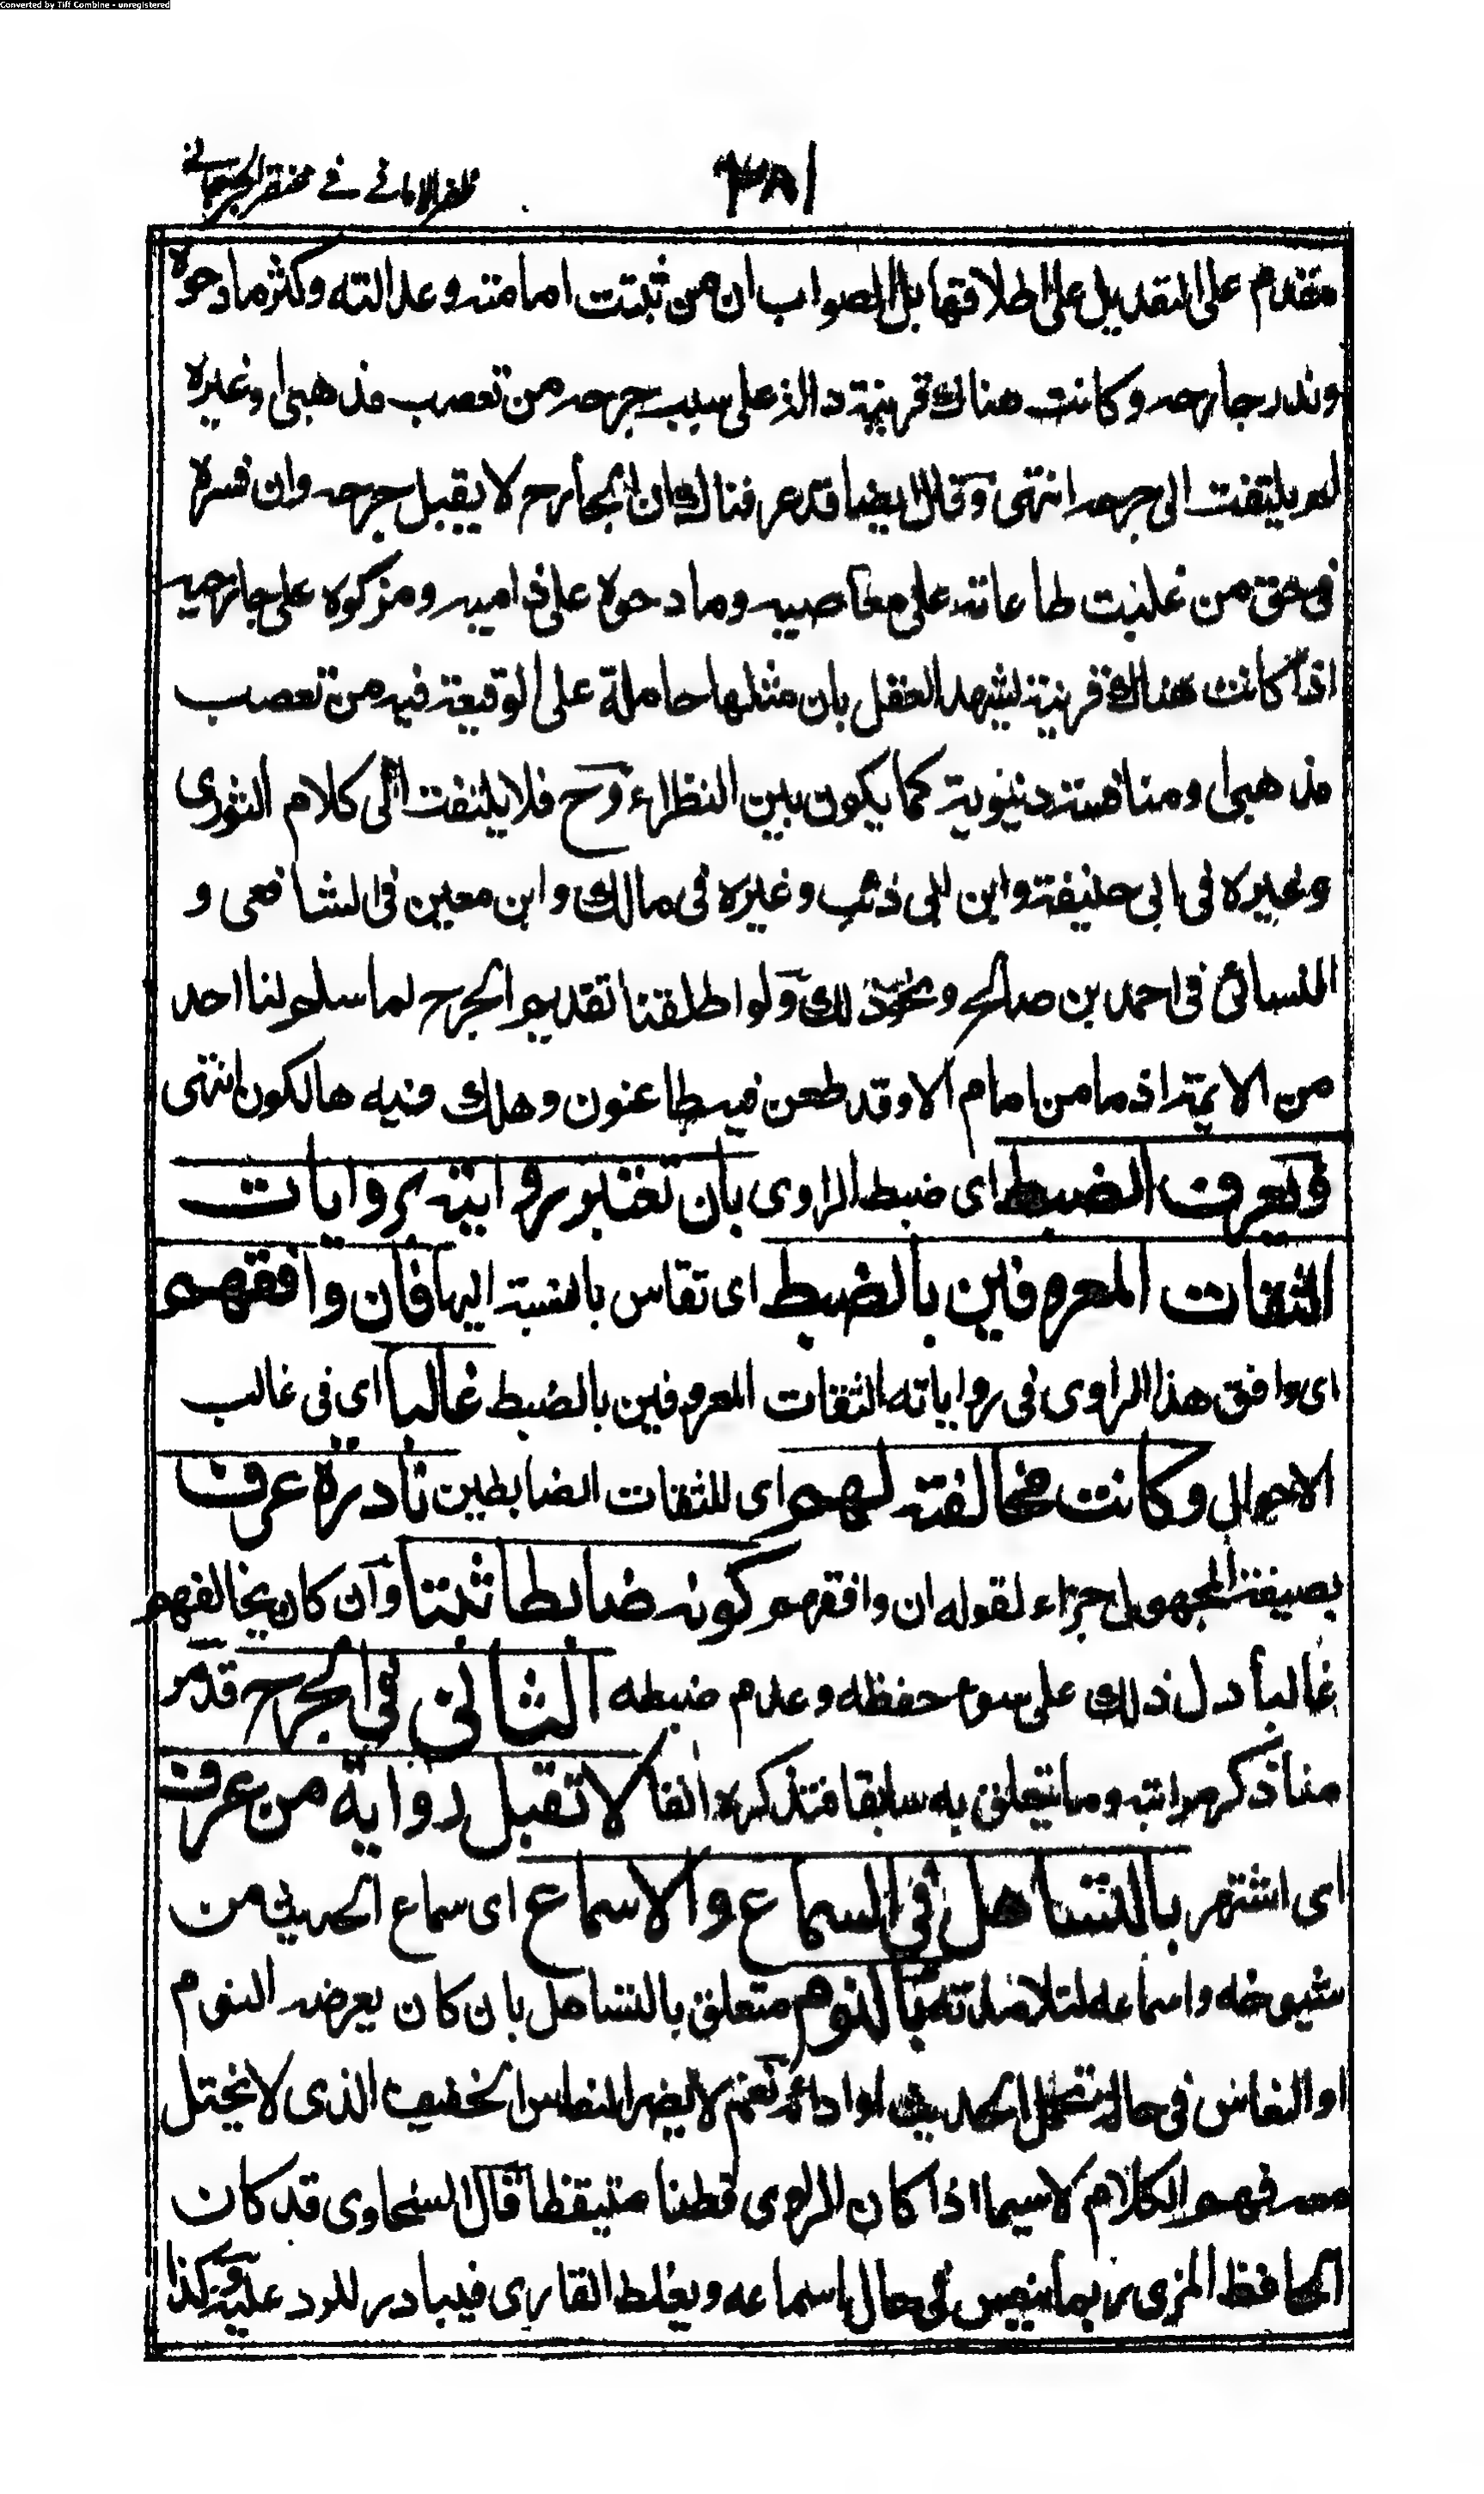 Converted by Tiff Combine - unregistered
ظفر الاماني في مختصر الجرجاني
مقدم على التعديل على اطلاقها بل الصواب ان من ثبتت امامته وعدالته وكثر مادحوه
وندر جارحه وكانت هناك قرينة دالة على سبب جرحه من تعصب مذهبي او غيره
لم يلتفت الى جرحه انتهى وقال ايضا قد عرفناك ان الجارح لا يقبل جرحه وان فسره
في حق من غلبت طاعاته على معاصيه ومادحوه على ذاميه ومزكوه على جارحيه
اذا كانت هناك قرينة يشهد العقل بان مثلها حاملة على الوقيعة فيه من تعصب
مذهبي او منافسة دنيوية كما يكون بين النظراء وح فلا يلتفت الى كلام الثوري
وغيره في ابي حنيفة وابن ابي ذئب وغيره في مالك وابن معين في الشافعي و
النسائي في احمد بن صالح ونحو ذلك ولو اطلقنا تقديم الجرح لما سلم لنا احد
من الايمة اذ ما من امام الا وقد طعن فيه طاعنون وهلك فيه هالكون انتهى
ويعرف الضبط اي ضبط الراوي بان تعتبر روايته بروايات
الثقات المعروفين بالضبط اي تقاس بالنسبة اليها فان وافقهم
اي وافق هذا الراوي في رواياته الثقات المعروفين بالضبط غالبا اي في غالب
الاحوال وكانت مخالفته لهم اي للثقات الضابطين نادرة عرف
بصيغة المجهول جزاء لقوله ان وافقهم كونه ضابطا ثبتا وان كان يخالفهم
غالبا دل ذلك على سوء حفظه وعدم ضبطه الثاني في الجرح قد مر
منا ذكر مراتبه وما يتعلق به سابقا فتذكره انفا لا تقبل رواية من عرف
اي اشتهر بالتساهل في السماع والاسماع اي سماع الحديث من
شيوخه واسماعه لتلامذته بالنوم متعلق بالتساهل بان كان يعرضه النوم
او النعاس في حالة تحمل الحديث او ادائه نعم لا يضر النعاس الخفيف الذي لا يختل
معه فهم الكلام لا سيما اذا كان الراوي فطنا متيقظا قال السخاوي قد كان
الحافظ المزي ربما ينعس في حال اسماعه ويغلط القاري فيبادر للرد عليه وكذا